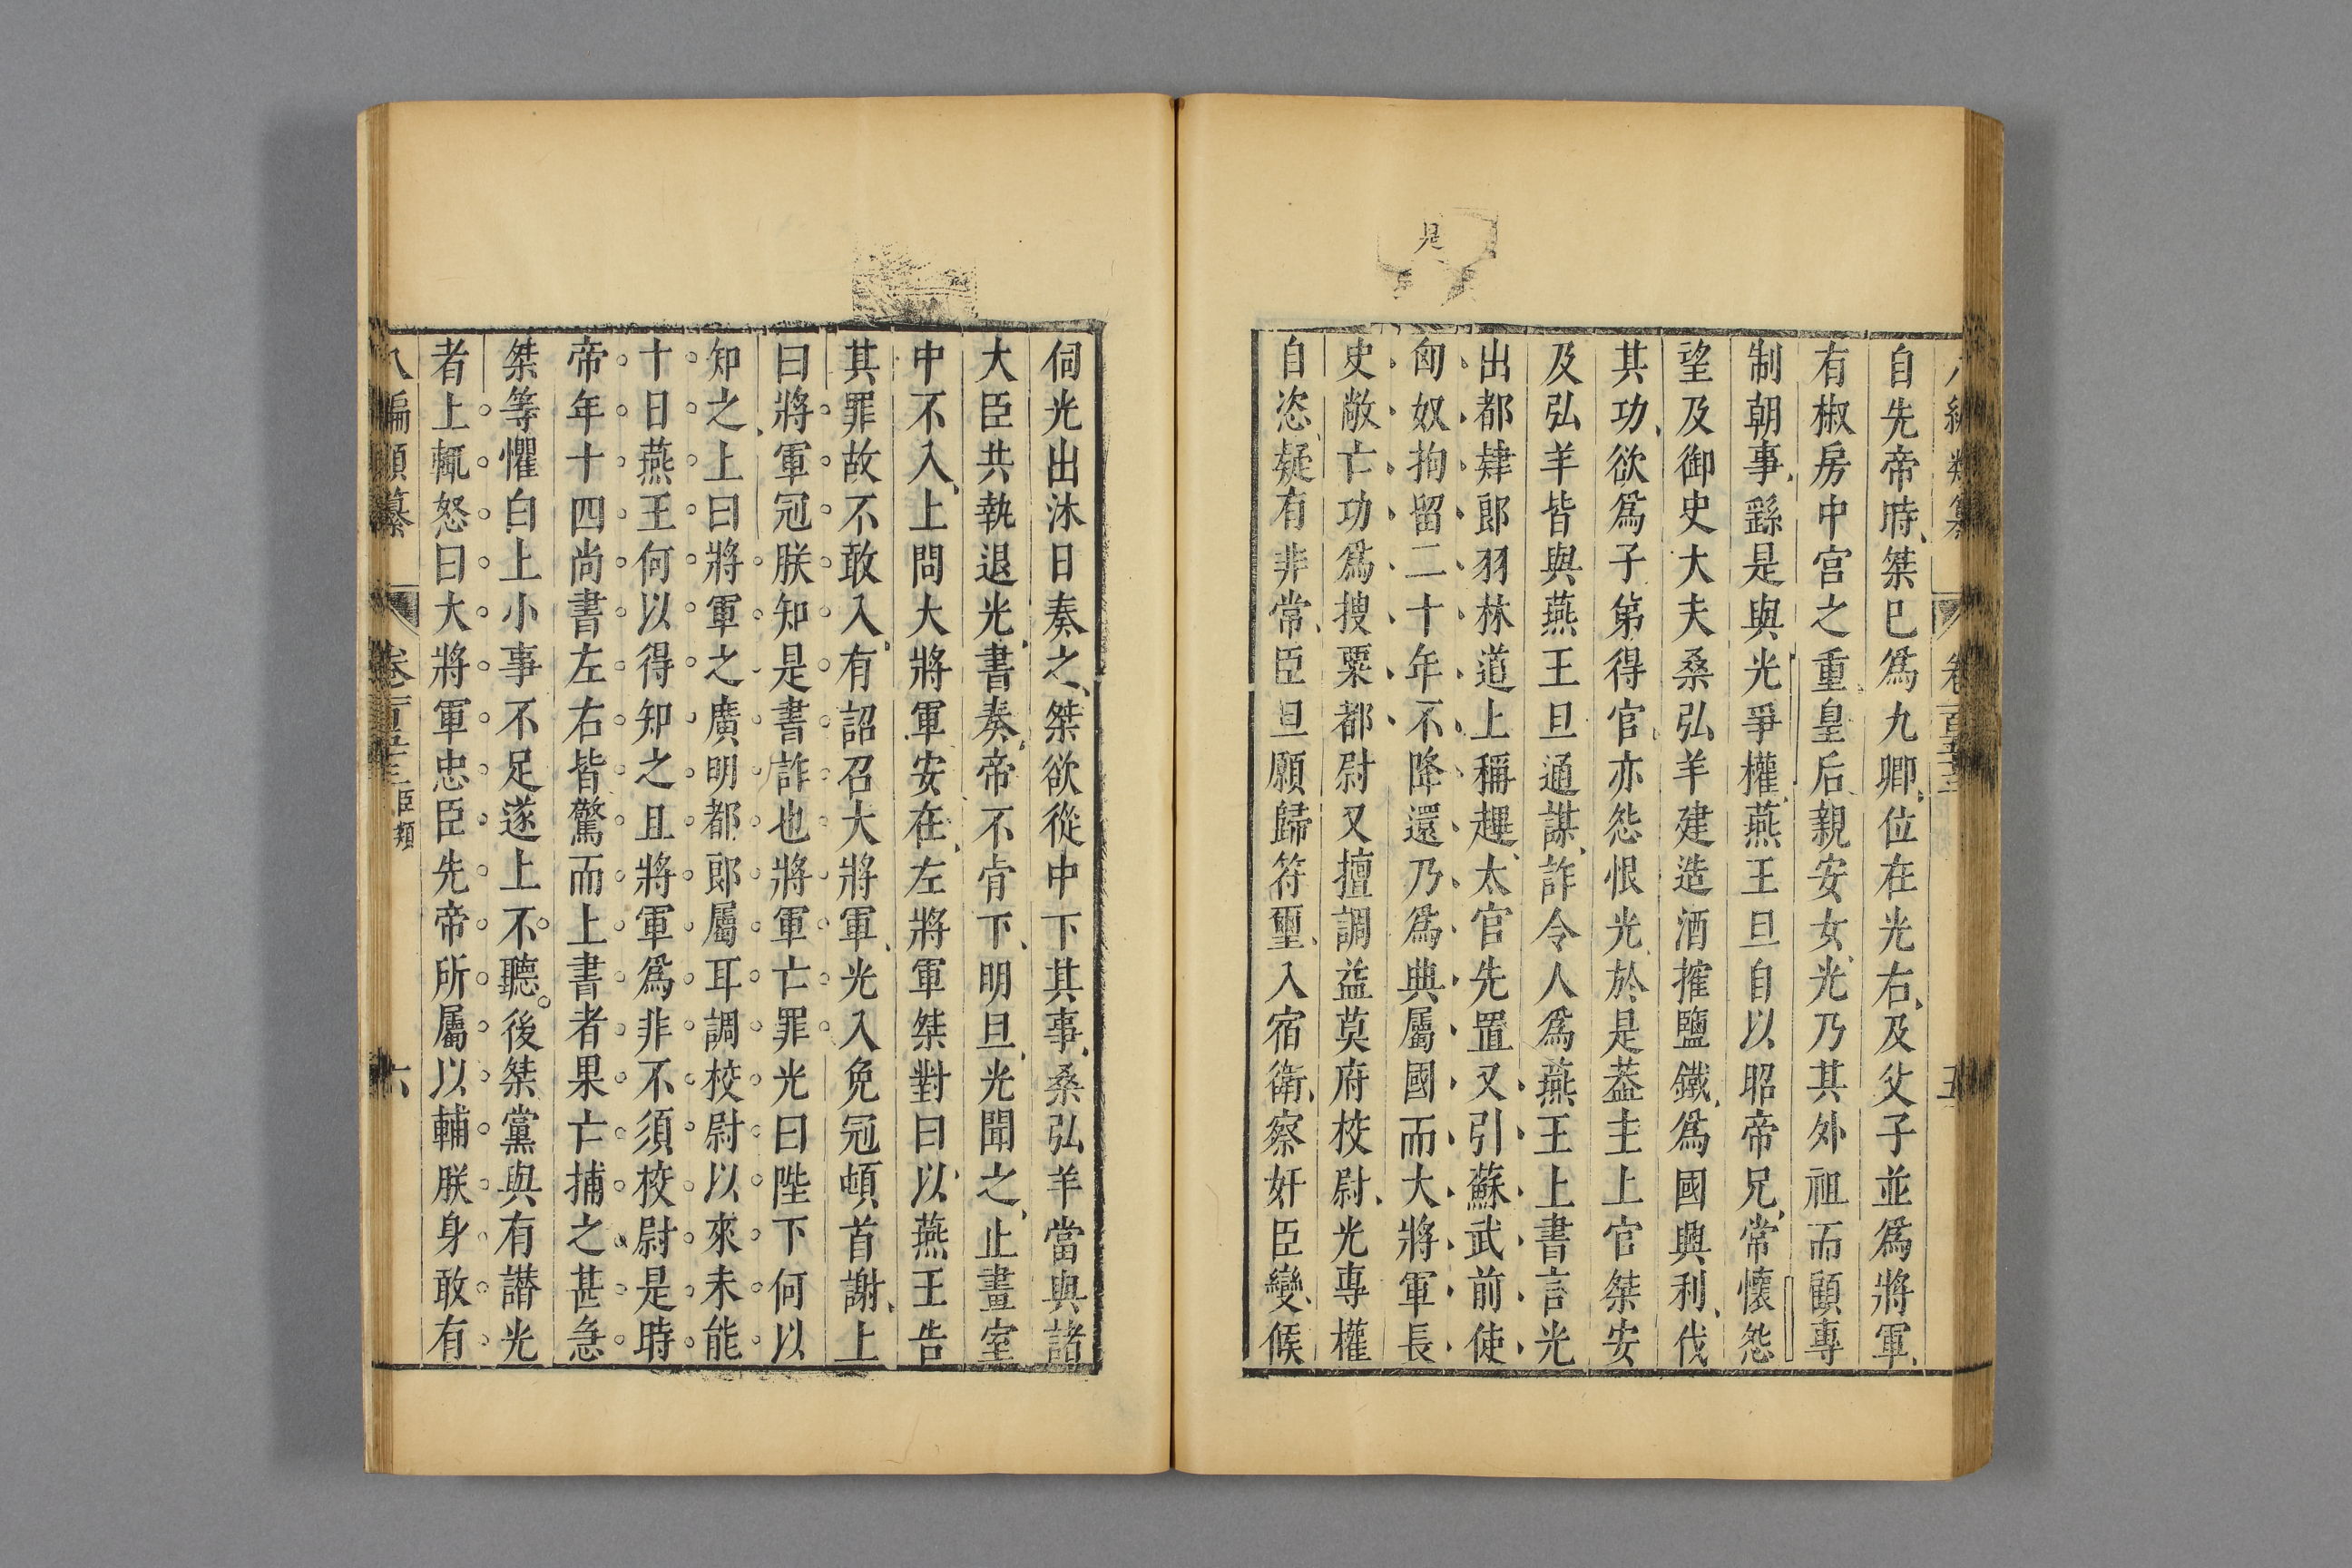 自先帝時桀已爲九卿位在光右及父子並爲將軍
有椒房中宮之重皇后親安女光乃其外祖而顧專
制朝事繇是與光爭權燕王旦自以昭帝兄常懷怨
望及御史大夫桑弘羊建造酒搉鹽鐵爲國興利伐
其功欲爲子弟得官亦怨恨光於是蓋主上官桀安
及弘羊皆與燕王旦通謀詐令人爲燕王上書言光
出都肄郎羽林道上稱趕太官先置又引蘇武前使
匈奴拘留二十年不降還乃爲典屬國而大將軍長
史敞亡功爲搜粟都尉又擅調益莫府校尉光專權
自恣疑有非常臣旦願歸符璽入宿衛察奸臣變候
是
伺光出沐日奏之桀欲從中下其事桑弘羊當與諸
大臣共執退光書奏帝不肯下明旦光聞之止畫室
中不入上問大將軍安在左將軍桀對曰以燕王告
其罪故不敢入有詔召大將軍光入免冠頓首謝上
曰將軍冠朕知是書詐也將軍亡罪光曰陛下何以
知之上曰將軍之廣明都郎屬耳調校尉以來未能
十日燕王何以得知之且將軍爲非不須校尉是時
帝年十四尚書左右皆驚而上書者果亡捕之甚急
桀等懼白上小事不足遂上不聽後桀黨與有譖光
者上輒怒曰大將軍忠臣先帝所屬以輔朕身敢有
八編類纂 卷 臣類 六